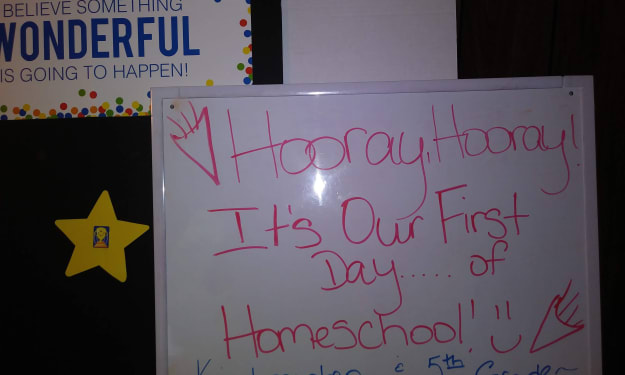 BELIEVE SOMETHING
WONDERFUL
IS GOING TO HAPPEN!
Hooray, Hooray!
It's Our First
Day..... of
Homeschool! :)
Kindergarten & 5th Grade